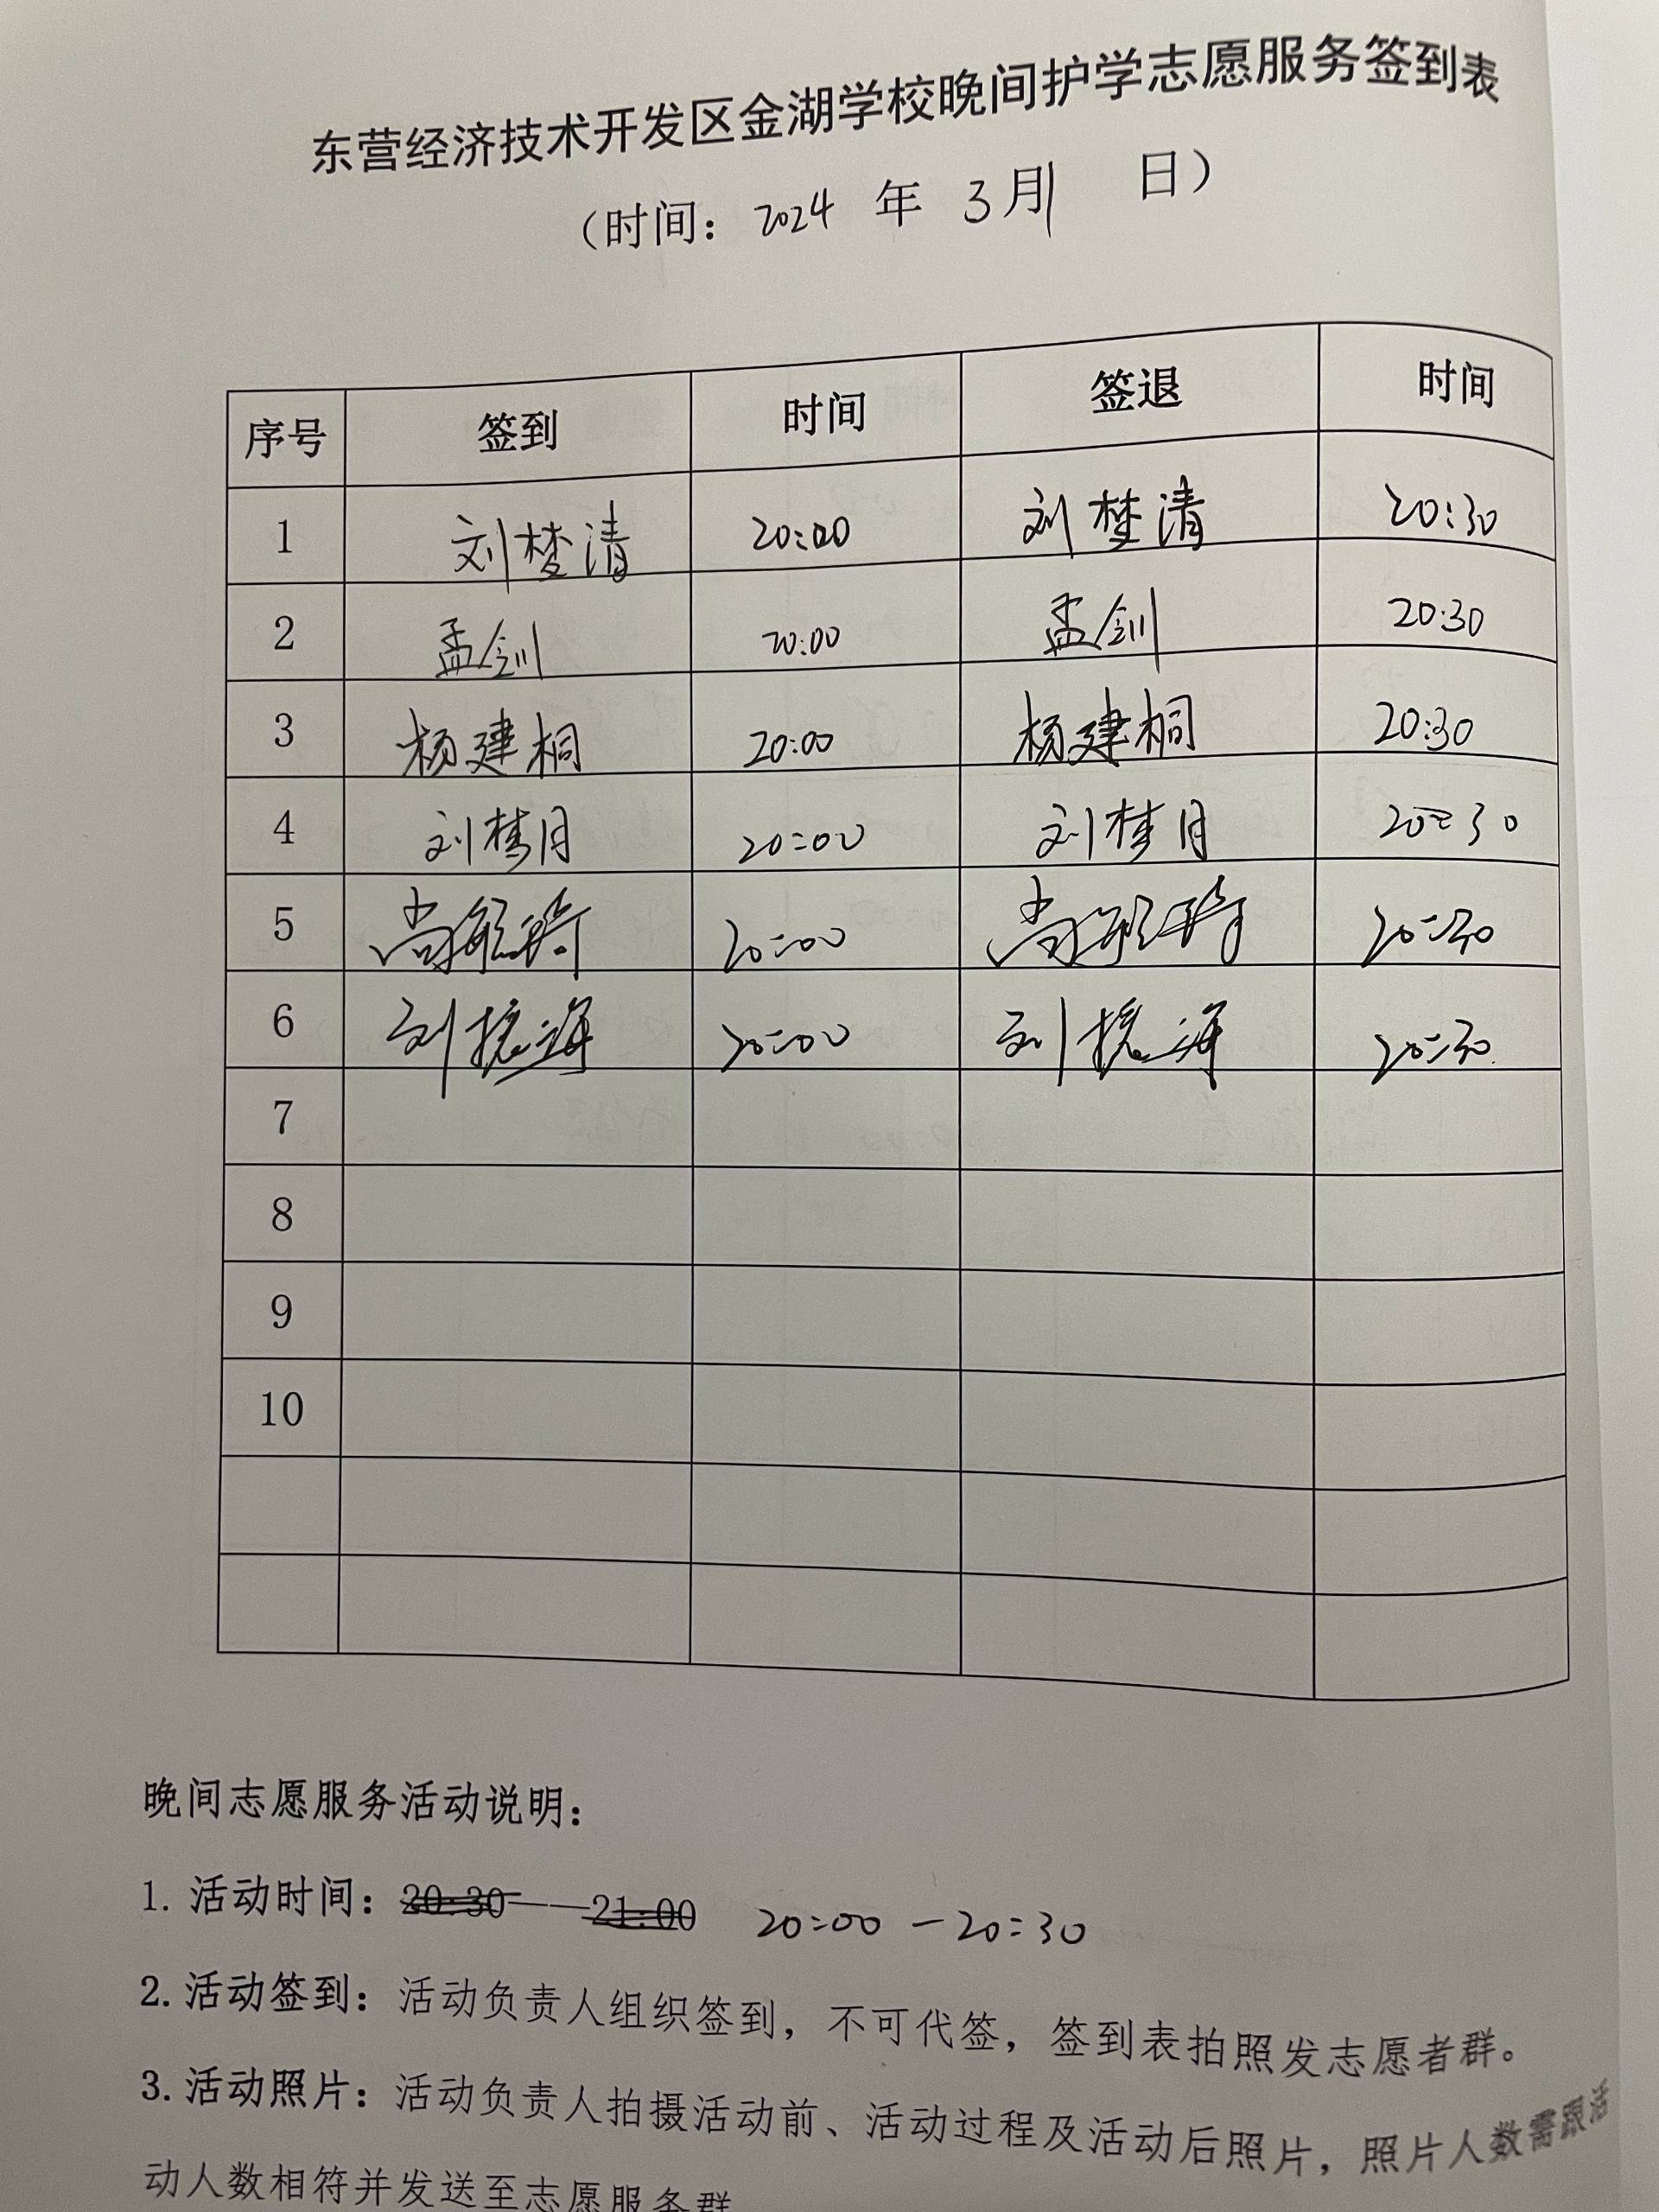 东营经济技术开发区金湖学校晚间护学志愿服务签到表
（时间：2024 年 3月1 日）
序号 签到 时间 签退 时间
1 刘梦清 20:00 刘梦清 20:30
2 孟剑 20:00 孟剑 20:30
3 杨建桐 20:00 杨建桐 20:30
4 刘梦月 20:00 刘梦月 20:30
5 尚 20:00 尚 20:30
6 刘振海 20:00 刘振海 20:30
7
8
9
10
晚间志愿服务活动说明：
1. 活动时间：20:30——21:00 20:00 — 20:30
2. 活动签到：活动负责人组织签到，不可代签，签到表拍照发志愿者群。
3. 活动照片：活动负责人拍摄活动前、活动过程及活动后照片，照片人数需跟活
动人数相符并发送至志愿服务群